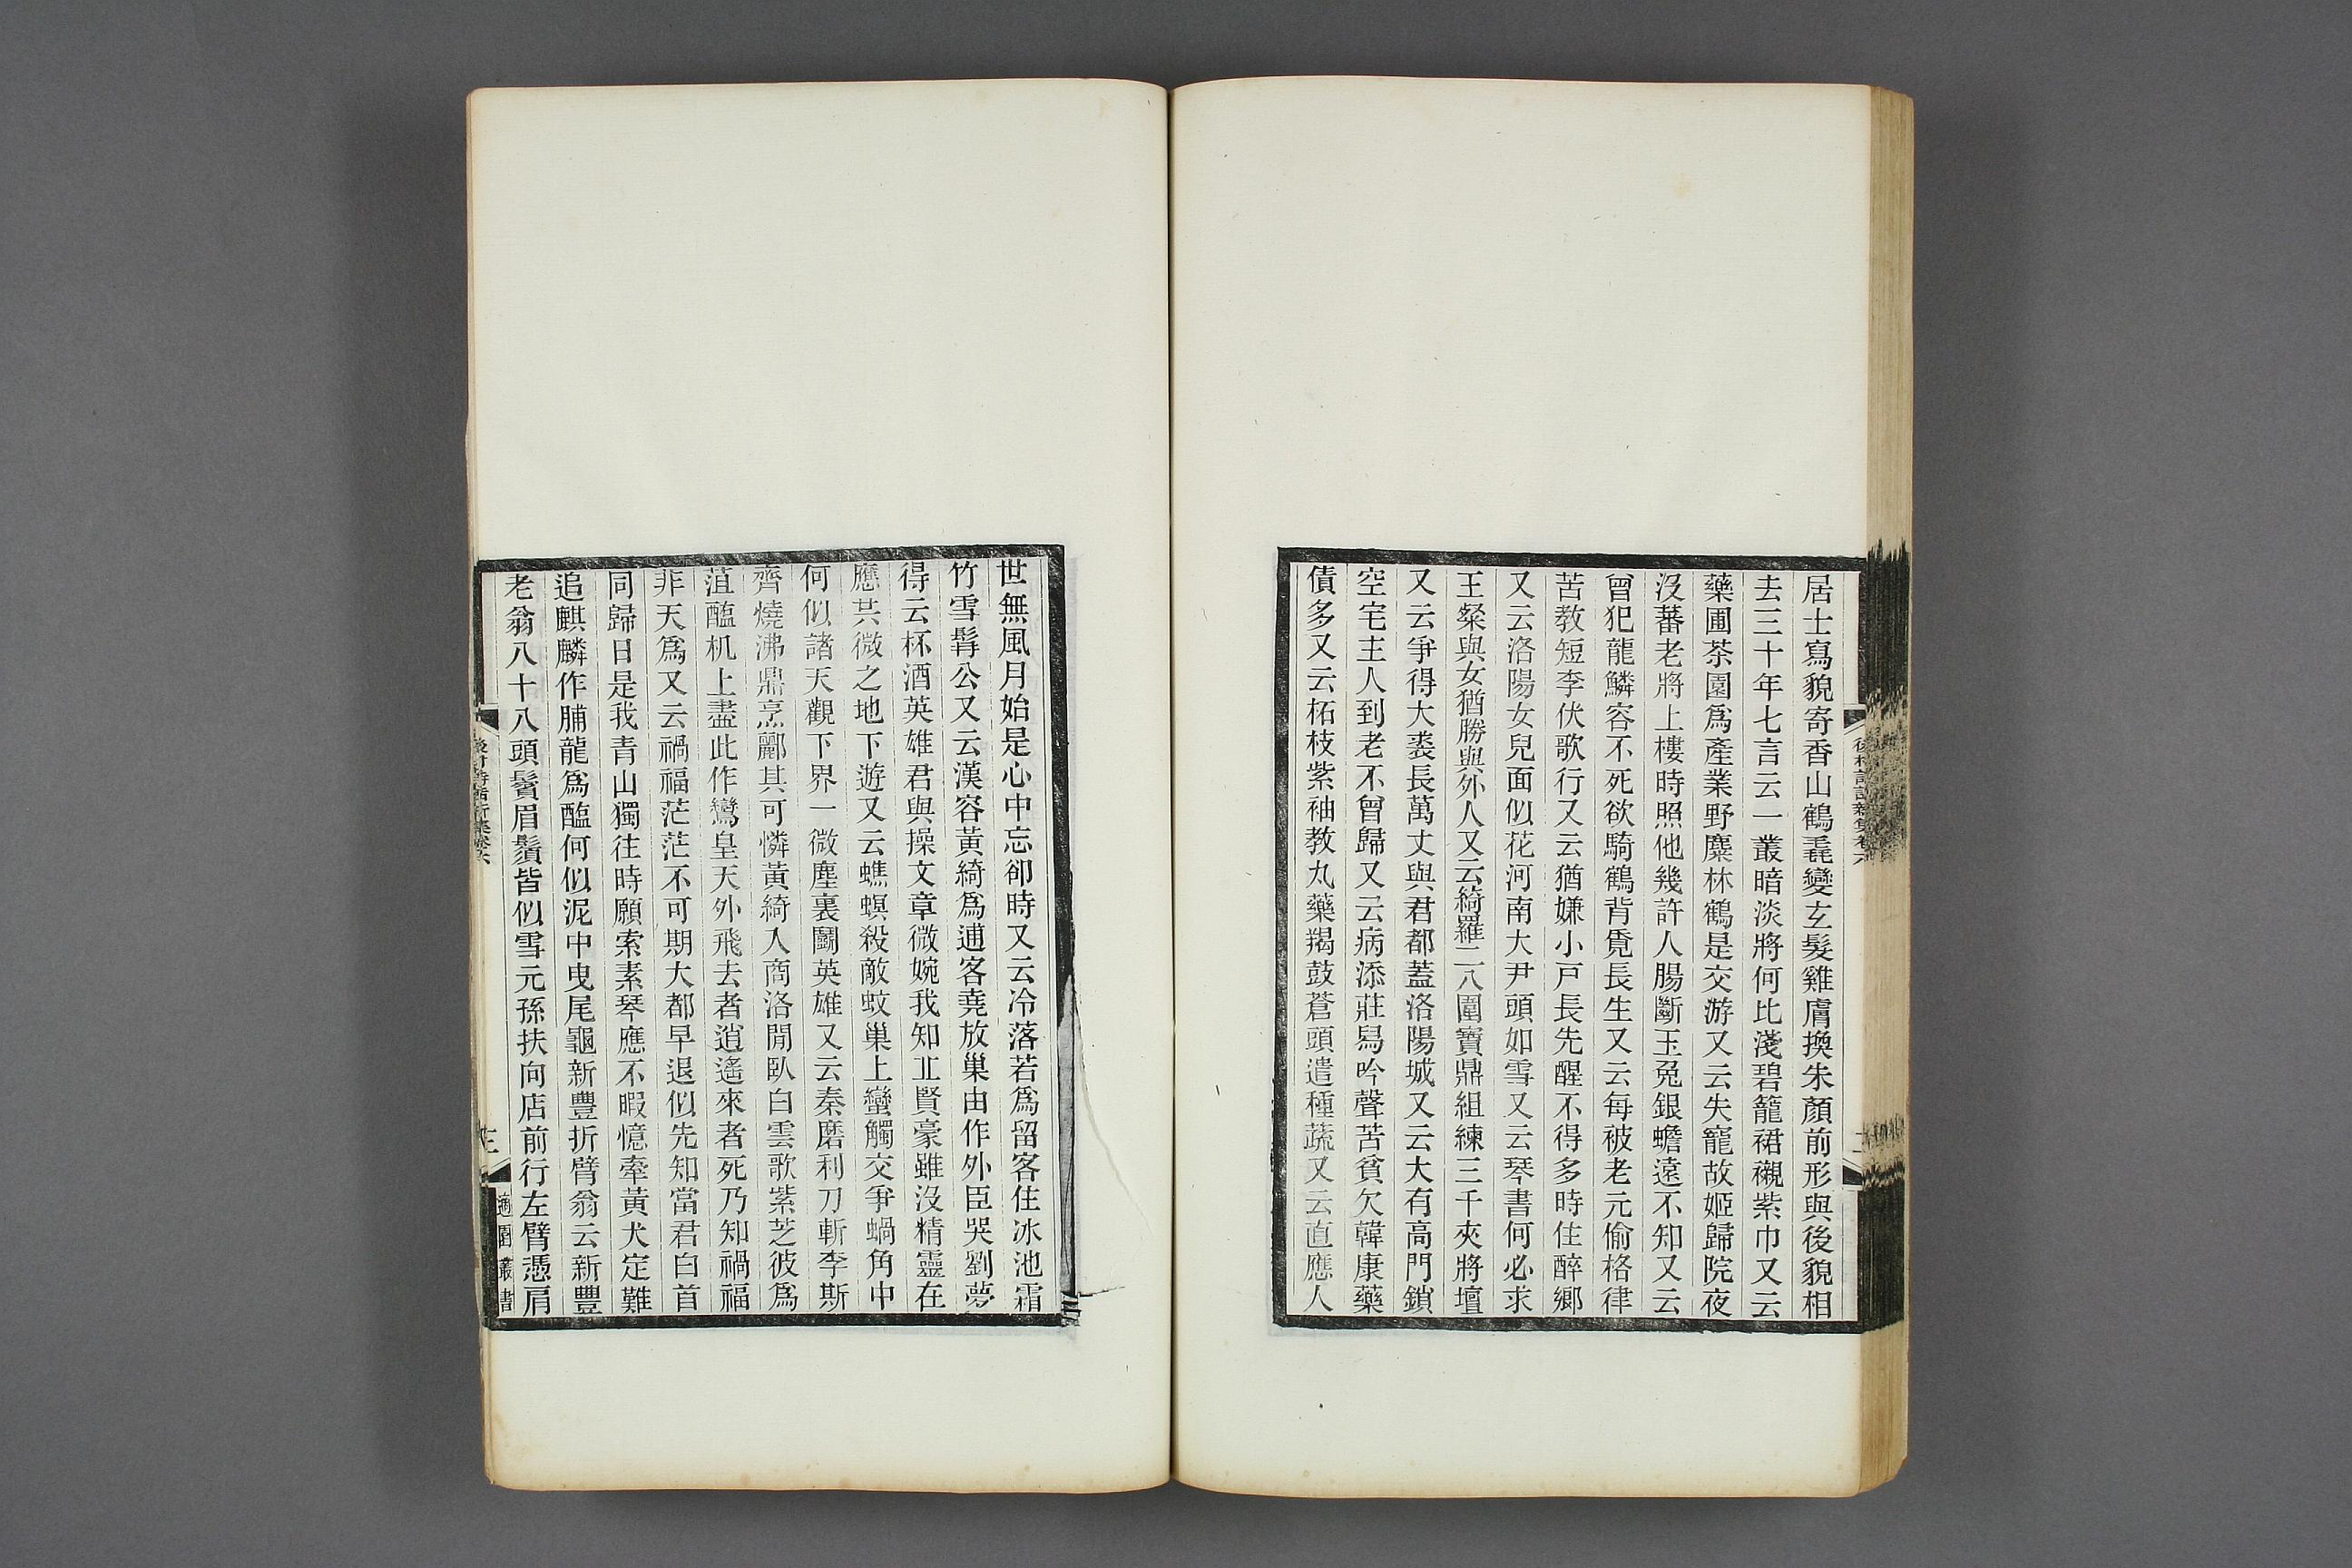 居士寫貌寄香山鶴毳變玄髮雞膚換朱顏前形與後貌相
去三十年七言云一叢暗淡將何比淺碧籠裙襯紫巾又云
藥圃茶園爲產業野麋林鶴是交游又云失寵故姬歸院夜
沒蕃老將上樓時照他幾許人腸斷玉兔銀蟾遠不知又云
曾犯龍鱗容不死欲騎鶴背覓長生又云每被老元偷格律
苦教短李伏歌行又云猶嫌小戸長先醒不得多時住醉鄉
又云洛陽女兒面似花河南大尹頭如雪又云琴書何必求
王粲與女猶勝與外人又云綺羅二八圍寶鼎組練三千夾將壇
又云爭得大裘長萬丈與君都蓋洛陽城又云大有高門鎖
空宅主人到老不曾歸又云病添莊舄吟聲苦貧欠韓康藥
債多又云柘枝紫袖教丸藥羯鼓蒼頭遣種蔬又云直應人
世無風月始是心中忘卻時又云冷落若爲留客住冰池霜
竹雪髯公又云漢容黃綺爲逋客堯放巢由作外臣哭劉夢
得云杯酒英雄君與操文章微婉我知丘賢豪雖沒精靈在
應共微之地下遊又云蟭螟殺敵蚊巢上蠻觸交爭蝸角中
何似諸天觀下界一微塵裏鬬英雄又云秦磨利刀斬李斯
齊燒沸鼎烹酈其可憐黃綺入商洛閒臥白雲歌紫芝彼爲
葅醢机上盡此作鸞皇天外飛去者逍遙來者死乃知禍福
非天爲又云禍福茫茫不可期大都早退似先知當君白首
同歸日是我青山獨往時願索素琴應不暇憶牽黃犬定難
追麒麟作脯龍爲醢何似泥中曳尾龜新豐折臂翁云新豐
老翁八十八頭鬢眉鬚皆似雪元孫扶向店前行左臂憑肩
三
適園叢書